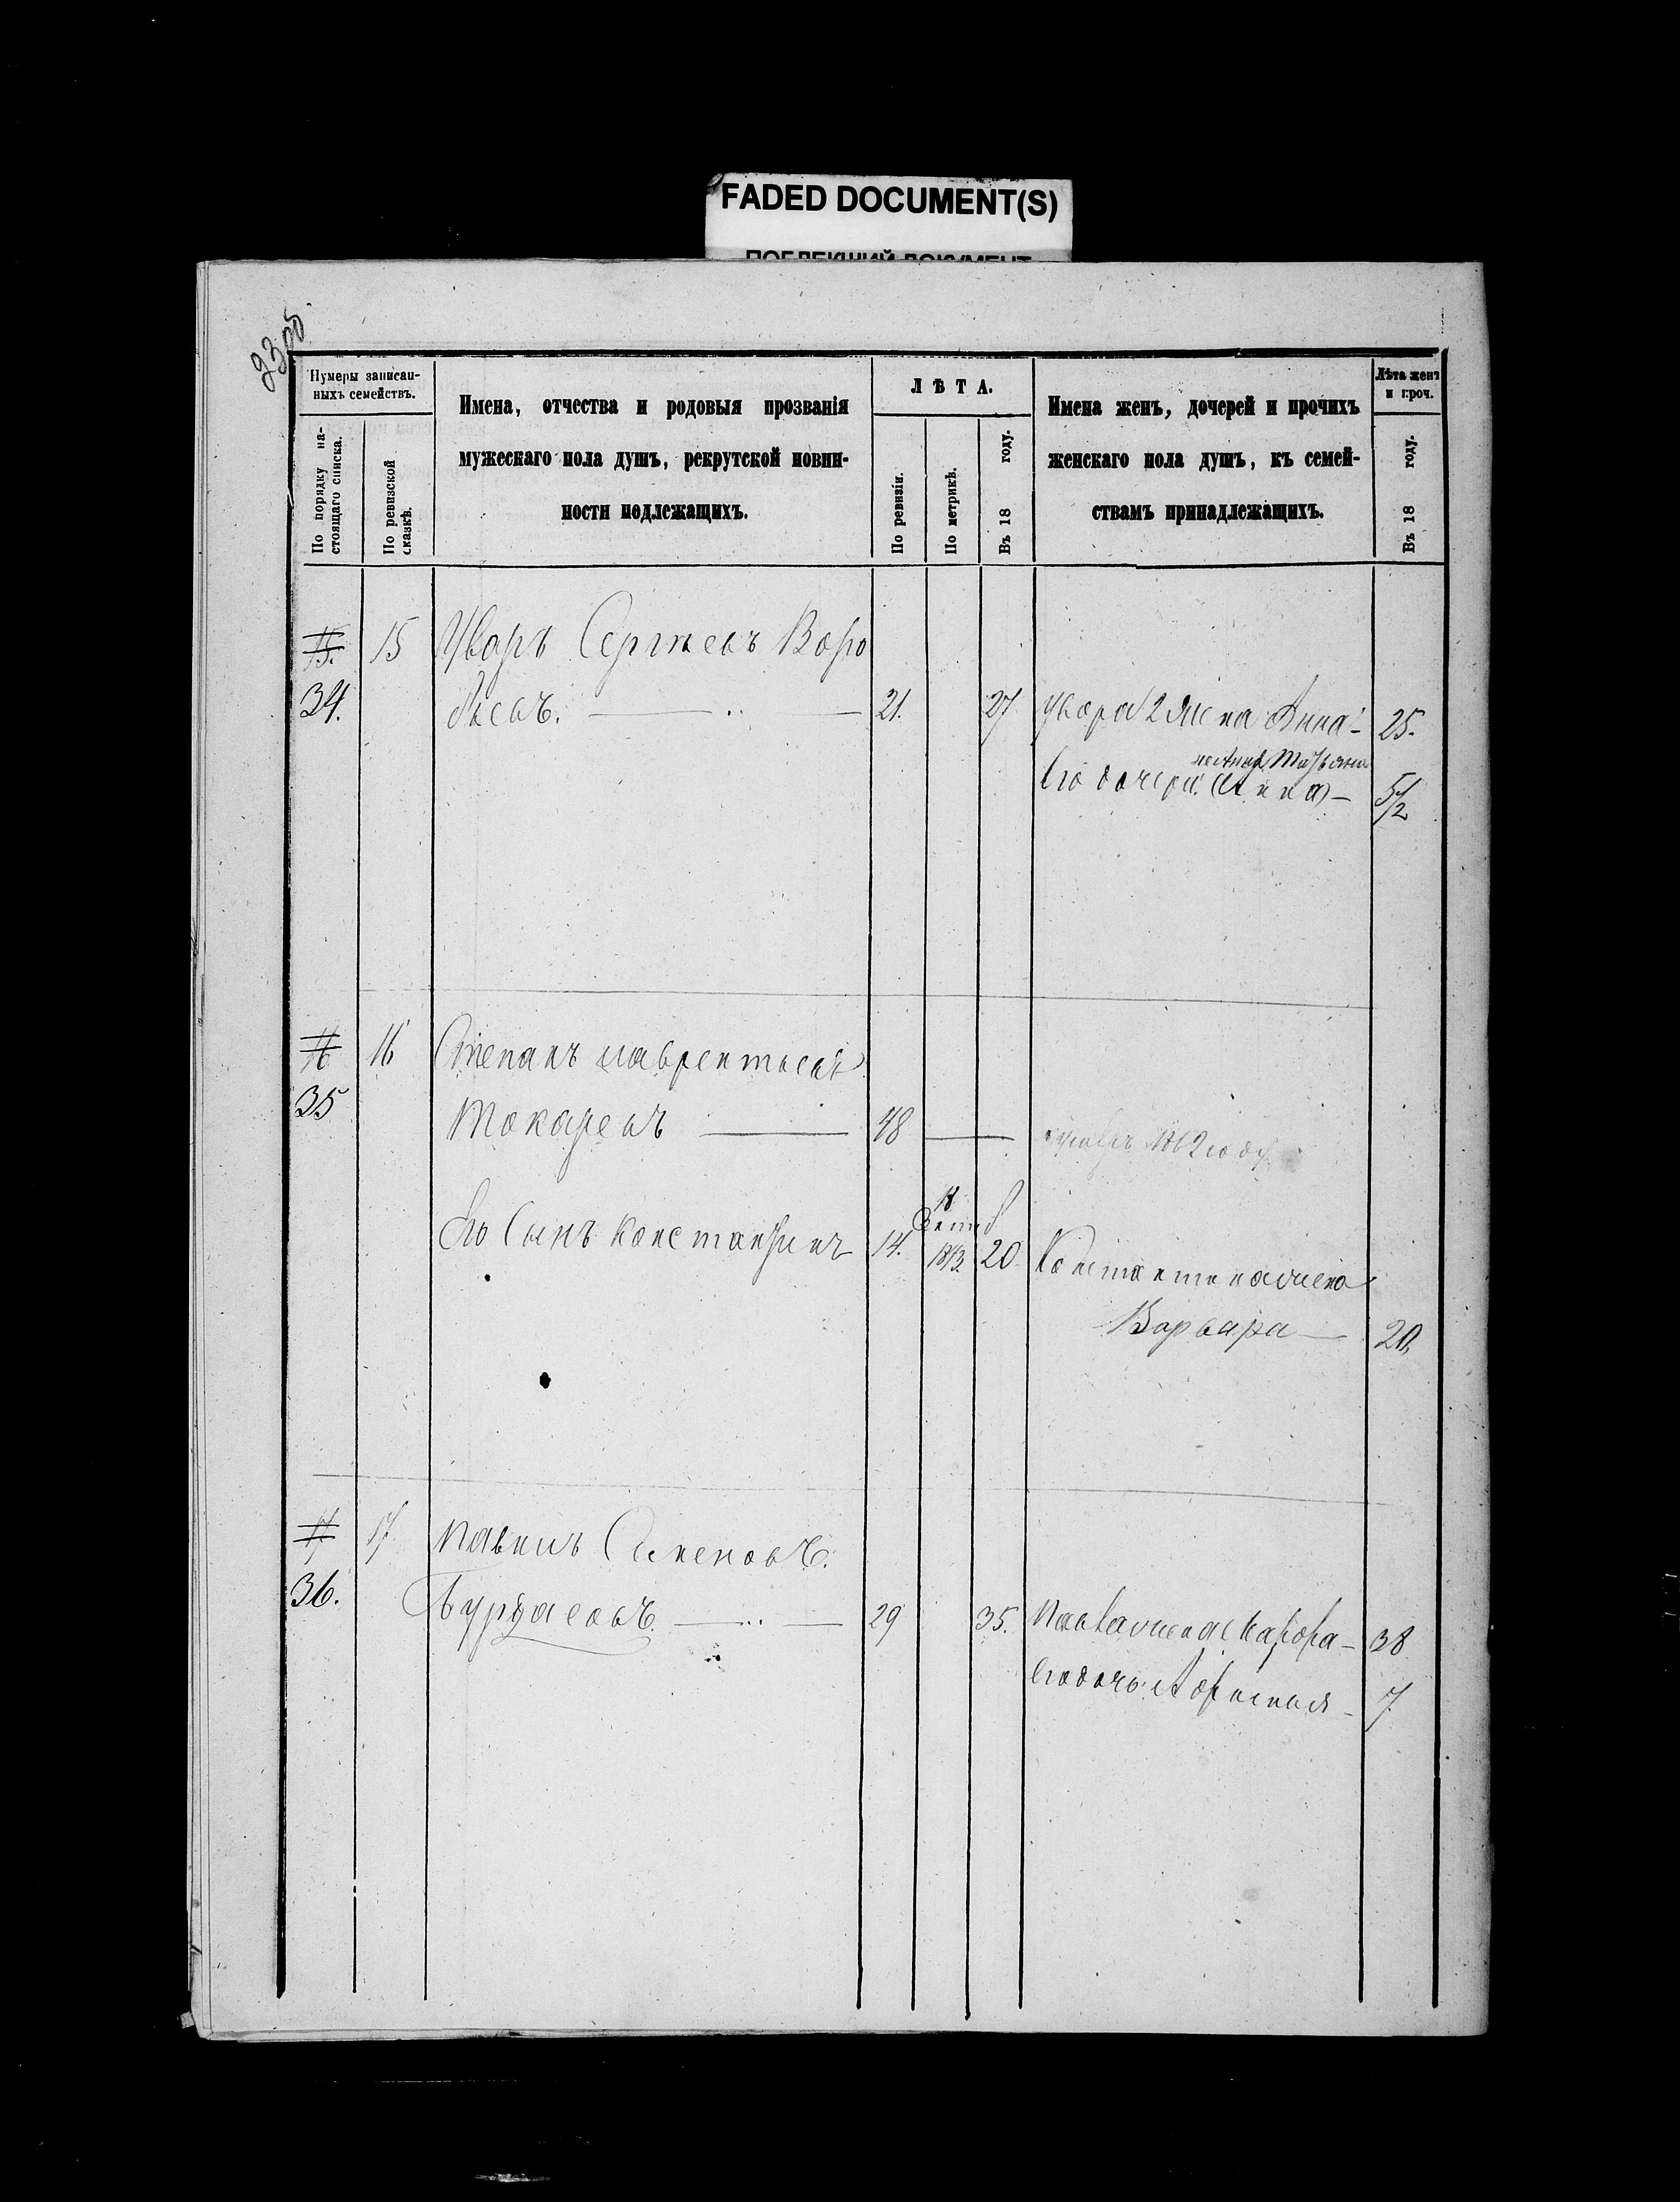 FADED DOCUMENT(S)
ПОБЛЕКШИЙ ДОКУМЕНТ
Нумеры записан-
ныхъ семействъ.
По порядку на-
стоящаго списка.
По ревизской
сказкѣ.
Имена, отчества и родовыя прозванія
мужескаго пола душъ, рекрутской повин-
ности подлежащихъ.
ЛѢТА.
По ревизіи.
По метрикѣ.
Въ 18 году.
Имена женъ, дочерей и прочихъ
женскаго пола душъ, къ семей-
ствамъ принадлежащихъ.
Лѣта женъ
и проч.
Въ 18 году.
15. 15 Уваръ Сергѣевъ Воро
34. бьевъ. 21. 27 Увара 2 жена Анна 25.
не Анна Татьяна
Его дочери (Анна) 5/2
16 16 Степанъ Лаврентьевъ
35 Токаревъ 48 умеръ 1862 году
18
Его Сынъ Константинъ 14. 1843. 20 Константина жена
Варвара 20,
17 17 Павилъ Семеновъ.
36. 29 35. Павла жена 38
Его дочь 7